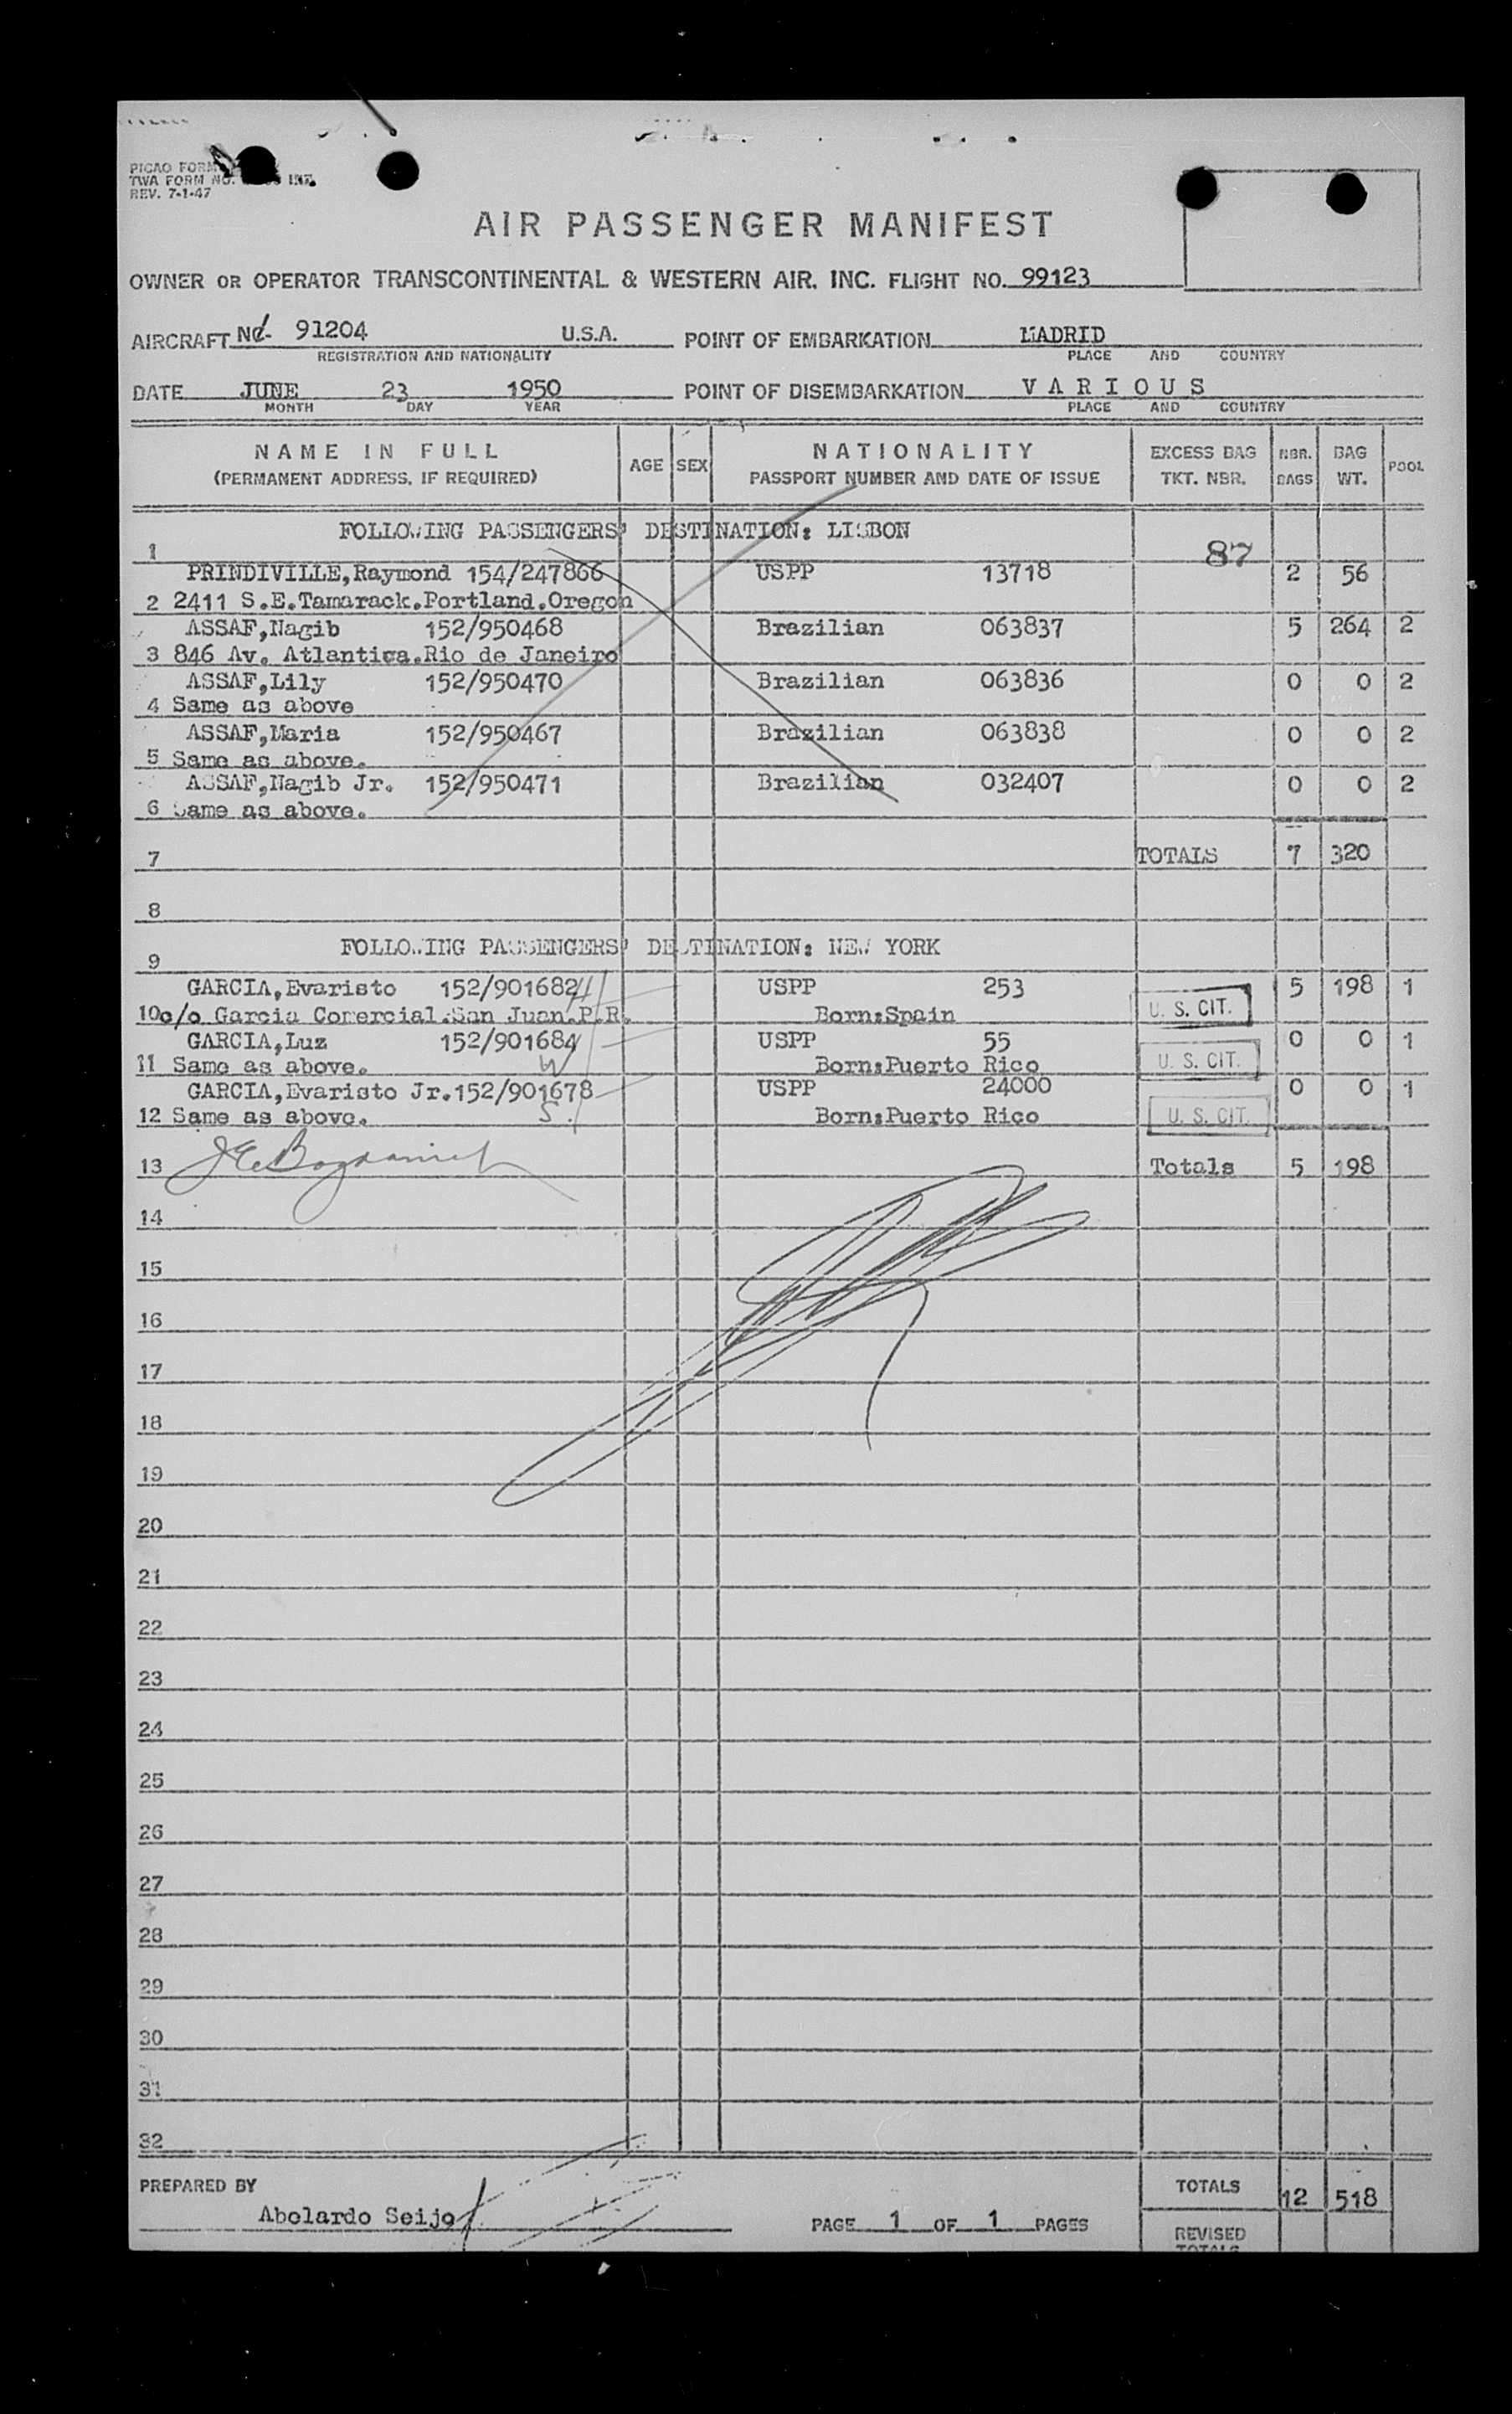 PICAO FORM
TWA FORM NO. INT.
REV. 7-1-47
AIR PASSENGER MANIFEST
OWNER OR OPERATOR TRANSCONTINENTAL & WESTERN AIR, INC. FLIGHT NO. 99123
AIRCRAFT NC- 91204 U.S.A. POINT OF EMBARKATION MADRID
REGISTRATION AND NATIONALITY PLACE AND COUNTRY
DATE JUNE 23 1950 POINT OF DISEMBARKATION V A R I O U S
MONTH DAY YEAR PLACE AND COUNTRY
NAME IN FULL AGE SEX NATIONALITY EXCESS BAG NBR. BAG POOL
(PERMANENT ADDRESS, IF REQUIRED) PASSPORT NUMBER AND DATE OF ISSUE TKT. NBR. BAGS WT.
FOLLOWING PASSENGERS' DESTINATION: LISBON
1 87
PRINDIVILLE,Raymond 154/247866 USPP 13718 2 56
2 2411 S.E.Tamarack.Portland.Oregon
ASSAF,Nagib 152/950468 Brazilian 063837 5 264 2
3 846 Av. Atlantica.Rio de Janeiro
ASSAF,Lily 152/950470 Brazilian 063836 0 0 2
4 Same as above
ASSAF,Maria 152/950467 Brazilian 063838 0 0 2
5 Same as above.
ASSAF,Nagib Jr. 152/950471 Brazilian 032407 0 0 2
6 Same as above.
7 TOTALS 7 320
8
FOLLOWING PASSENGERS' DESTINATION: NEW YORK
9
GARCIA,Evaristo 152/901682 USPP 253 5 198 1
10 c/o Garcia Comercial.San Juan.P.R. Born:Spain U. S. CIT.
GARCIA,Luz 152/901684 USPP 55 0 0 1
11 Same as above. W Born:Puerto Rico U. S. CIT.
GARCIA,Evaristo Jr.152/901678 USPP 24000 0 0 1
12 Same as above. S. Born:Puerto Rico U. S. CIT.
13 Totals 5 198
14
15
16
17
18
19
20
21
22
23
24
25
26
27
28
29
30
31
32
PREPARED BY TOTALS 12 518
Abelardo Seijo PAGE 1 OF 1 PAGES
REVISED
TOTALS